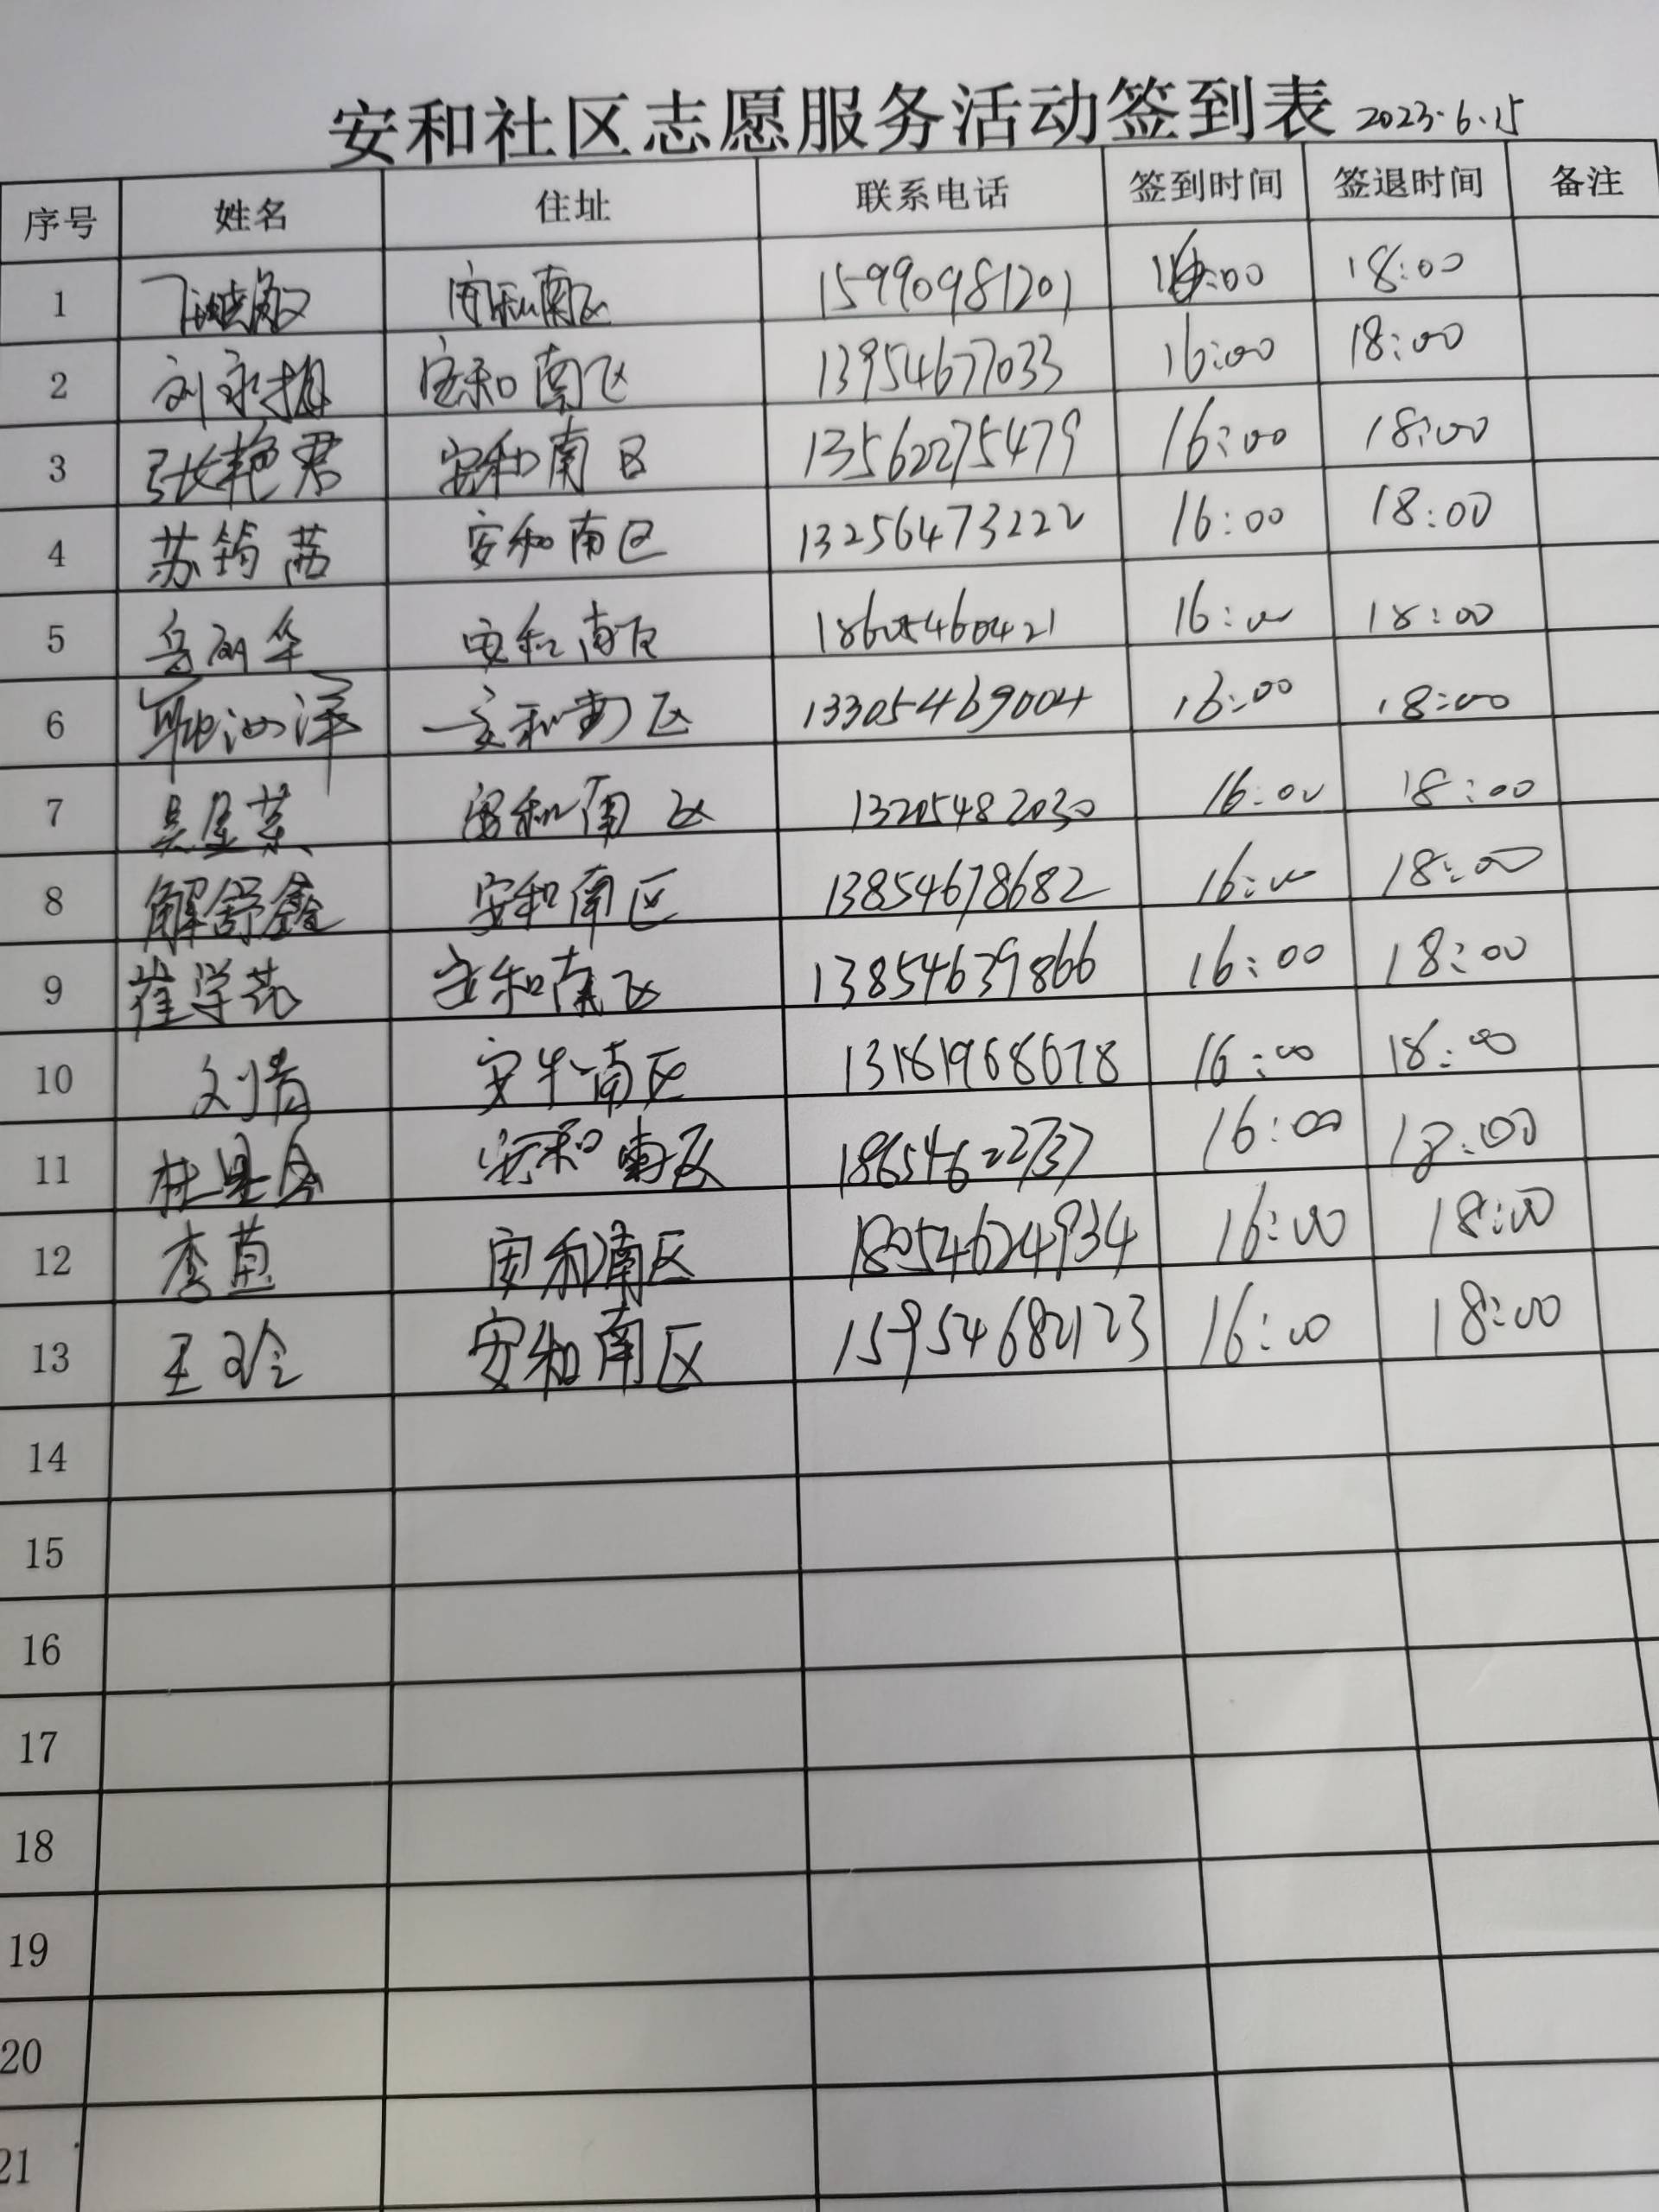 安和社区志愿服务活动签到表 2023.6.15
序号 姓名 住址 联系电话 签到时间 签退时间 备注
1 安和南区 15990981201 16:00 18:00
2 刘永梅 安和南区 13954677033 16:00 18:00
3 张艳君 安和南区 13562275479 16:00 18:00
4 苏筠茜 安和南区 13256473222 16:00 18:00
5 岳丽华 安和南区 18605460421 16:00 18:00
6 安和南区 13305469004 16:00 18:00
7 安和南区 13205482030 16:00 18:00
8 解舒鑫 安和南区 13854678682 16:00 18:00
9 崔学芹 安和南区 13854639866 16:00 18:00
10 刘倩 安和南区 13181968678 16:00 18:00
11 安和南区 18654622737 16:00 18:00
12 安和南区 18054624934 16:00 18:00
13 王玲 安和南区 15954682123 16:00 18:00
14
15
16
17
18
19
20
21